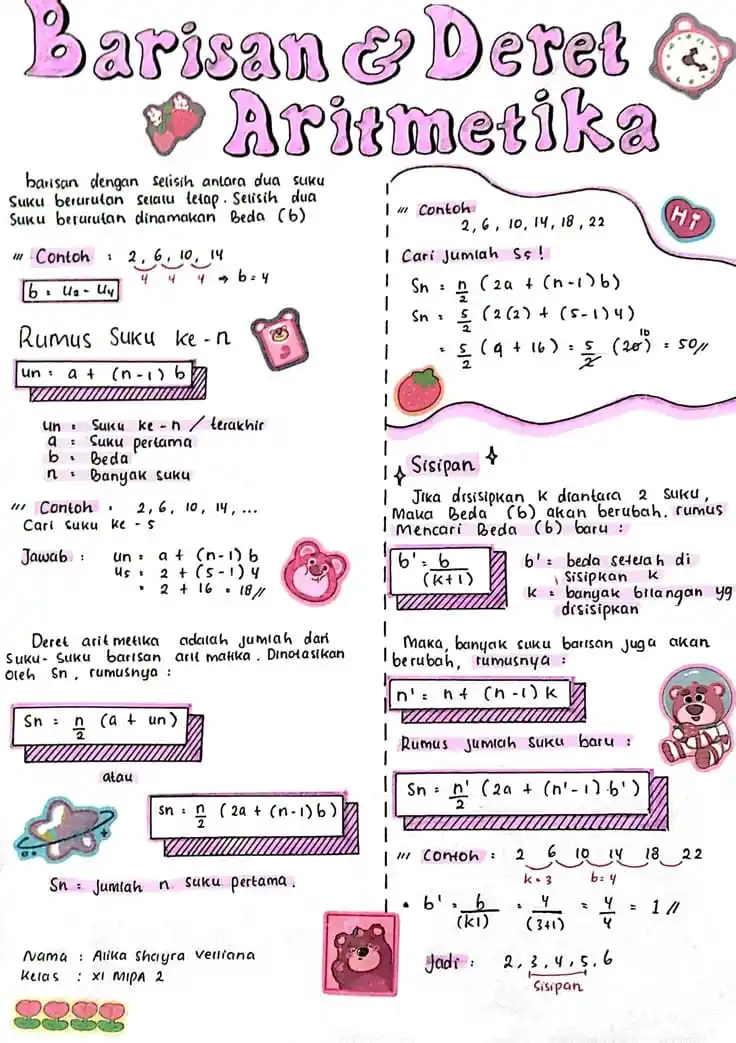 Barisan & Deret
Aritmetika
barisan dengan selisih antara dua suku
suku berurutan selalu tetap. Selisih dua
suku berurutan dinamakan Beda (b)
Contoh : 2, 6, 10, 14
4 4 4 → b = 4
b = U2 - U4
Rumus Suku ke - n
un = a + (n-1) b
un = Suku ke - n / terakhir
a = Suku pertama
b = Beda
n = Banyak suku
Contoh : 2, 6, 10, 14, ...
Cari suku ke - 5
Jawab : un = a + (n-1) b
u5 = 2 + (5-1) 4
= 2 + 16 = 18 //
Deret aritmetika adalah jumlah dari
suku-suku barisan aritmatika. Dinotasikan
oleh Sn, rumusnya :
Sn = n/2 (a + un)
atau
Sn = n/2 (2a + (n-1) b)
Sn = Jumlah n suku pertama.
Nama : Alika Shayra Verliana
Kelas : XI MIPA 2
Contoh
2, 6, 10, 14, 18, 22
Cari Jumlah S5 !
Sn = n/2 (2a + (n-1) b)
Sn = 5/2 (2(2) + (5-1) 4)
= 5/2 (4 + 16) = 5/2 (20) 10 = 50 //
Hi
Sisipan
Jika disisipkan k diantara 2 suku,
Maka Beda (b) akan berubah. rumus
Mencari Beda (b) baru :
b' = b/(k+1)
b' = beda setelah di
sisipkan k
k = banyak bilangan yg
disisipkan
Maka, banyak suku barisan juga akan
berubah, rumusnya :
n' = n + (n-1) k
Rumus jumlah suku baru :
Sn = n'/2 (2a + (n'-1) . b')
Contoh : 2 6 10 14 18 22
k = 3 b = 4
• b' = b/(k1) = 4/(3+1) = 4/4 = 1 //
Jadi : 2, 3, 4, 5, 6
sisipan